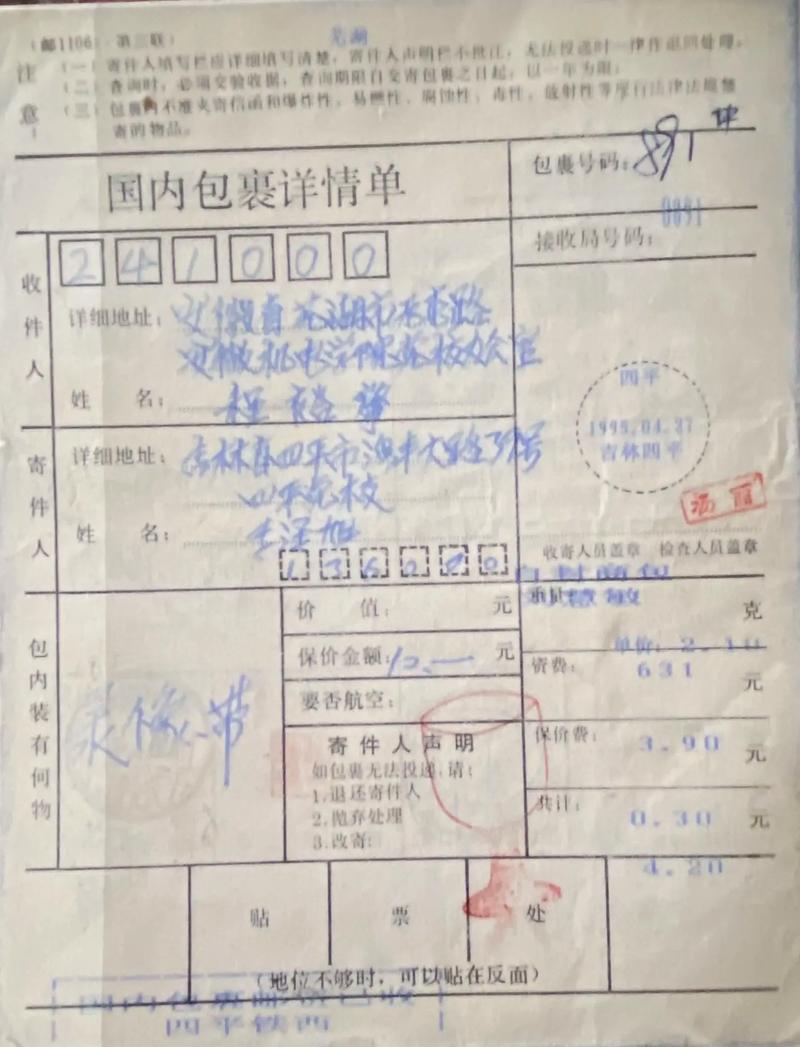 (邮1106 第二联)
芜湖
注意:
(一)寄件人填写栏应详细填写清楚,寄件人声明栏不批注,无法投递时一律作退回处理。
(二)查询时,必须交验收据,查询期限自交寄包裹之日起,以一年为限。
(三)包裹内不准夹寄信函和爆炸性、易燃性、腐蚀性、毒性、放射性等
寄的物品。
国内包裹详情单
包裹号码:891
0891
接收局号码:
收件人
241000
详细地址:安徽省芜湖市
安徽机电学院
姓 名:程
寄件人
详细地址:吉林省四平市
四平
姓 名:
136000
四平
1995.04.27
吉林四平
收寄人员盖章 检查人员盖章
自封商包
包内装有何物
录像带
价 值: 元
保价金额:10.— 元
要否航空:
寄件人声明
如包裹无法投递,请:
1.退还寄件人
2.抛弃处理
3.改寄:
重量: 克
单价:2.10
资费: 631 元
保价费: 3.90 元
共计: 0.30 元
4.20
贴 票 处
(地位不够时,可以贴在反面)
国内包裹邮资已收
四平铁西